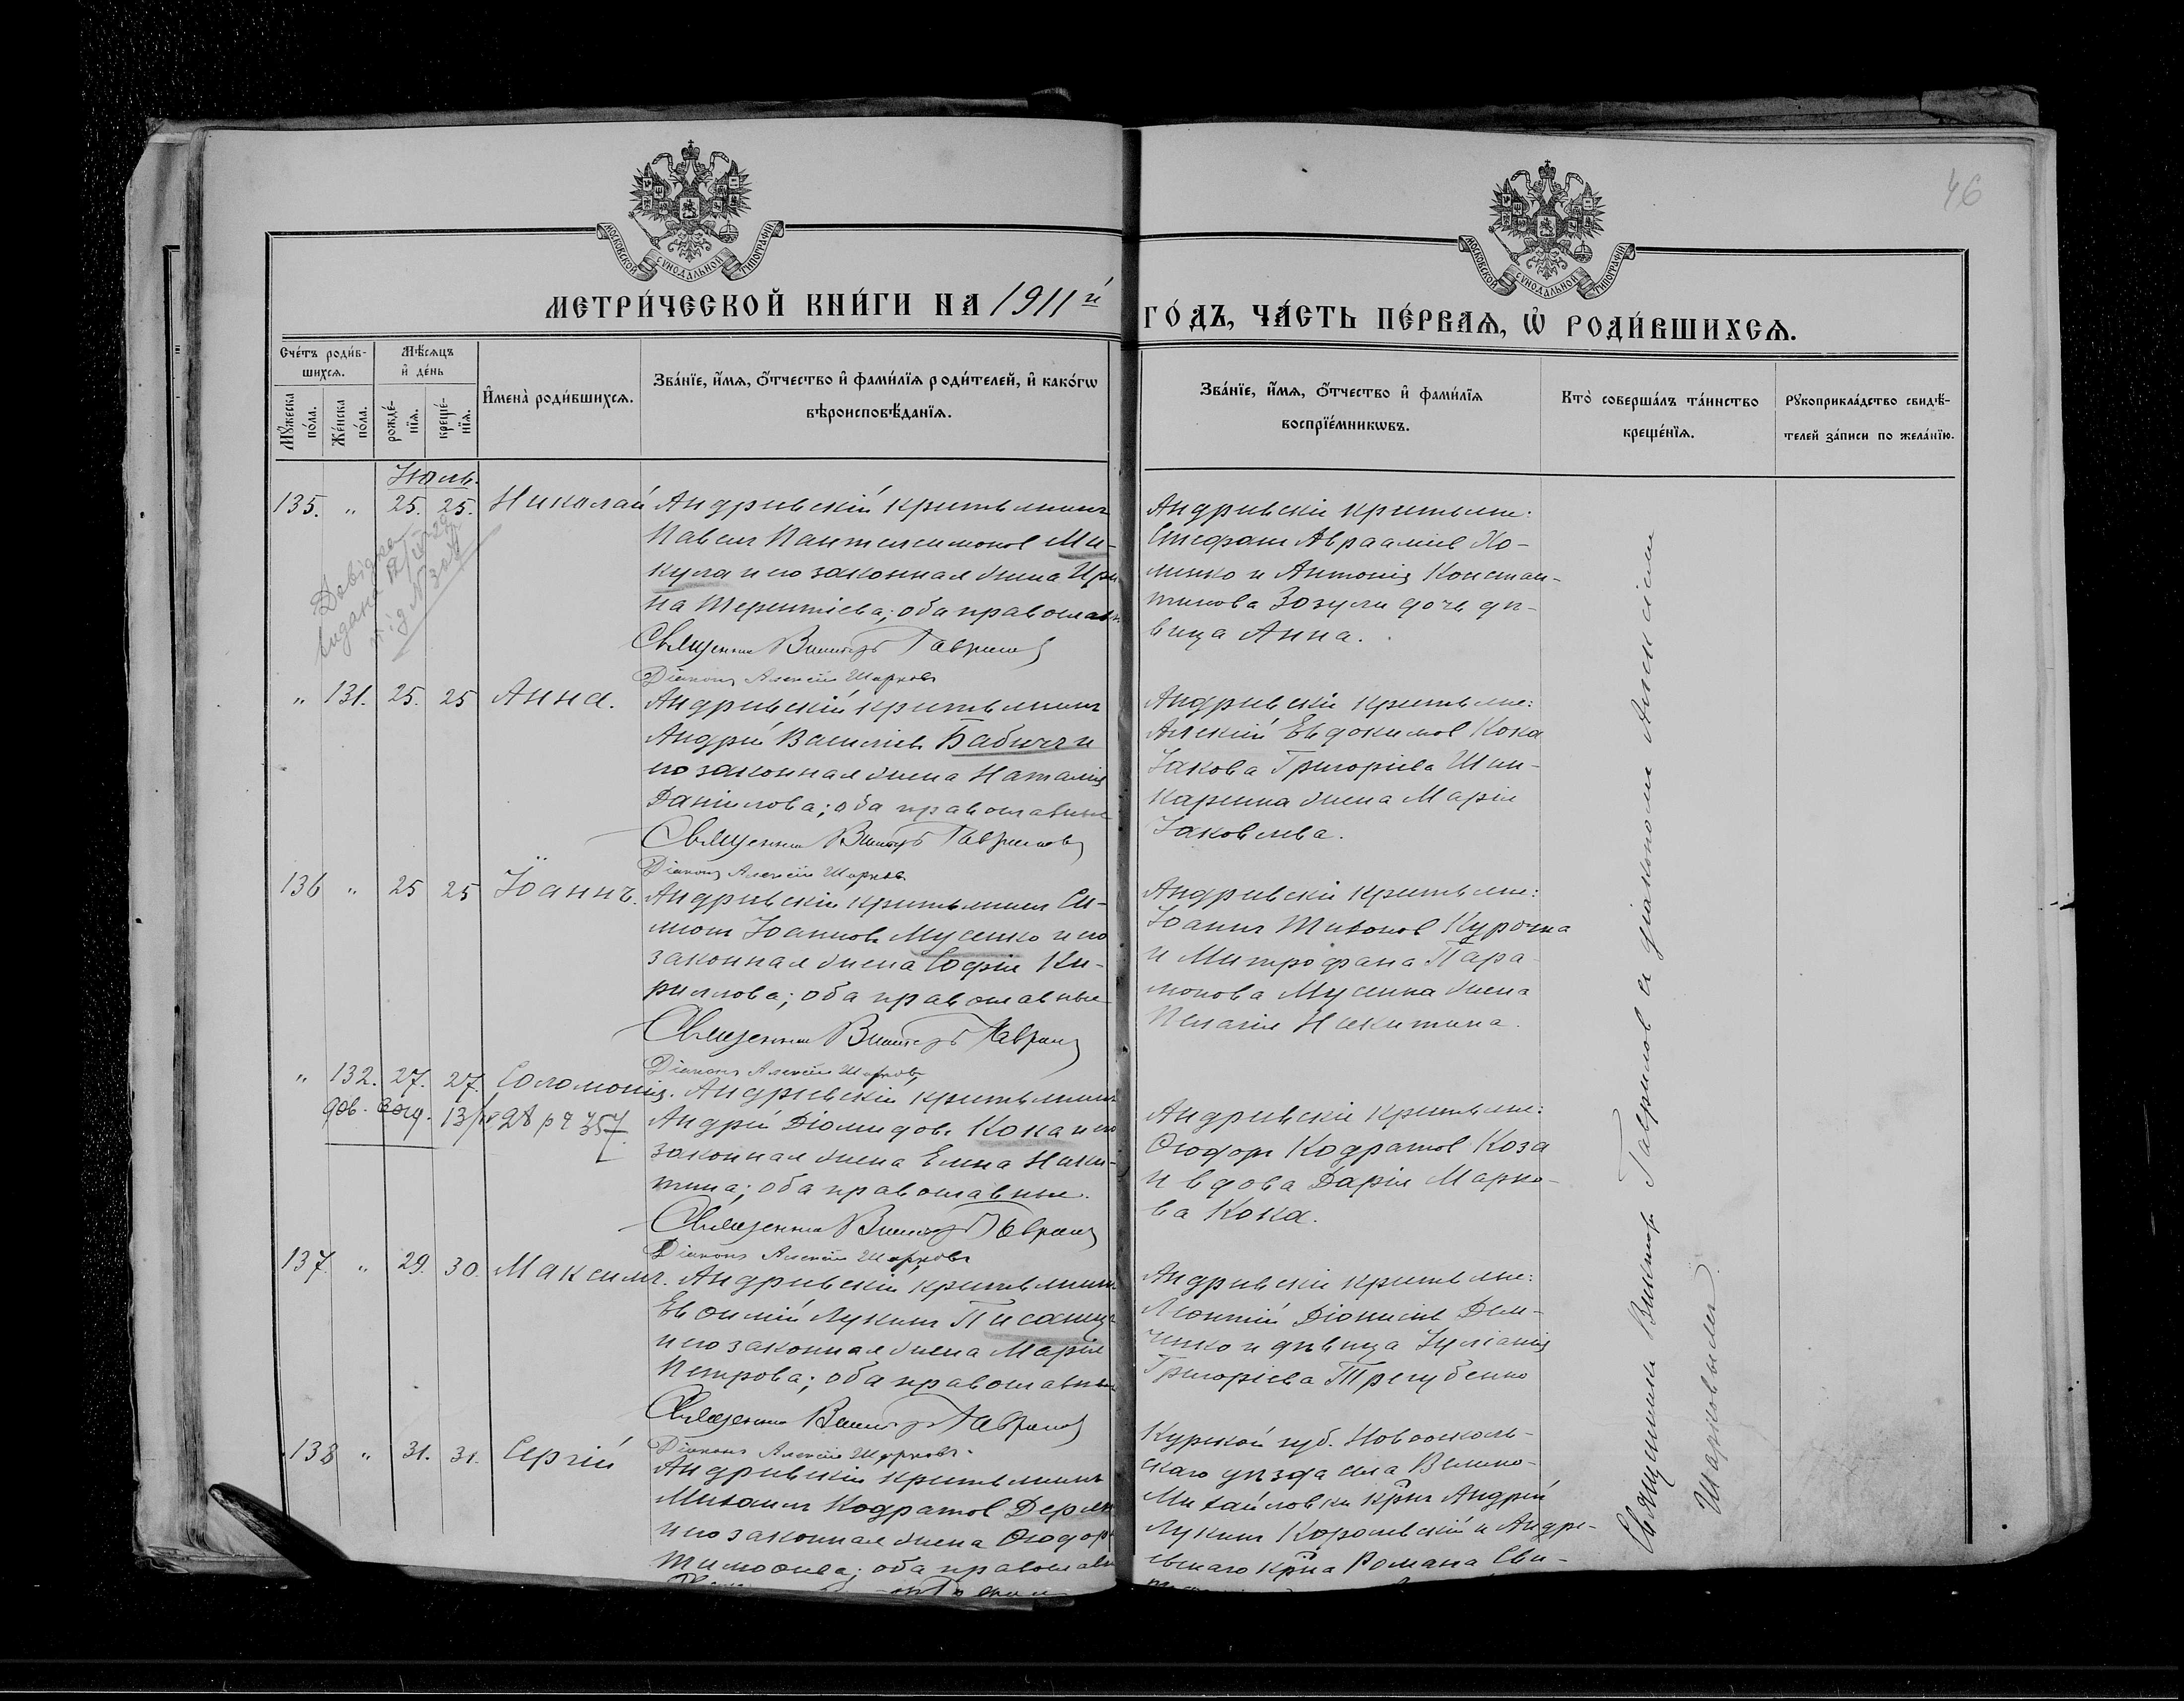 46
МОСКОВСКОЙ СѴНОДАЛЬНОЙ ТИПОГРАФІИ
МОСКОВСКОЙ СѴНОДАЛЬНОЙ ТИПОГРАФІИ
МЕТРИ́ЧЕСКОЙ КНИ́ГИ НА 1911й
ГО́ДЪ, ЧА́СТЬ ПЕ́РВАѦ, Ѡ҆ РОДИ́ВШИХСѦ.
Сче́тъ роди́в-
шихсѧ.
Мѣ́сѧцъ
и҆ де́нь
Мꙋ́жеска
по́ла.
Же́нска
по́ла.
рожде́-
нїѧ.
креще́-
нїѧ.
И҆мена̀ роди́вшихсѧ.
Зва́нїе, и҆́мѧ, ѻ҆́тчество и҆ фами́лїѧ роди́телей, и҆ како́гѡ
вѣроисповѣ́данїѧ.
Зва́нїе, и҆́мѧ, ѻ҆́тчество и҆ фами́лїѧ
воспрїе́мникѡвъ.
Кто̀ соверша́лъ та́инство
креще́нїѧ.
Рꙋкоприкла́дство свидѣ́-
телей за́писи по жела́нїю.
Іюль.
135. " 25. 25. Николай Андреевскій крестьянинъ
Павелъ Пантелеимоновъ Ми-
кула и его законная жена Ири
на Терентіева; оба православн
Священникъ Викторъ Гавриловъ
Діаконъ Алексій Шарковъ
Андреевскіе крестьяне:
Стефанъ Аврааміевъ Хо-
менко и Антонія Констан-
тинова Зозули дочь дѣ-
вица Анна.
Довідка
видана
під №
" 131. 25. 25 Анна. Андреевскій крестьянинъ
Андрей Васильевъ Бабичъ и
его законная жена Наталія
Даніилова; оба православные
Священникъ Викторъ Гавриловъ
Діаконъ Алексій Шарковъ
Андреевскіе крестьяне:
Алексій Евдокимовъ Кока
Іакова Григорьева Шин-
каренка жена Марія
Іаковлева.
136 " 25 25 Іоаннъ. Андреевскій крестьянинъ Си-
меонъ Іоанновъ Мусенко и его
законная жена Софія Ки-
риллова; оба православные
Священникъ Викторъ Гавриловъ
Діаконъ Алексій Шарковъ
Андреевскіе крестьяне:
Іоаннъ Тихоновъ Курочка
и Митрофана Пара-
монова Мусенка жена
Пелагія Никитина.
" 132. 27. 27. Соломонія. Андреевскій крестьянинъ
Андрей Діомидовъ Кока и его
законная жена Елена Ники-
тина; оба православные.
Священникъ Викторъ Гавриловъ
Діаконъ Алексій Шарковъ
дов. 357
Андреевскіе крестьяне:
Ѳеодоръ Кодратовъ Коза
и вдова Дарія Марко-
ва Кока.
137. " 29. 30. Максимъ. Андреевскій крестьянинъ
Евѳимій Лукинъ Писанецъ
и его законная жена Марія
Петрова; оба православные
Священникъ Викторъ Гавриловъ
Діаконъ Алексій Шарковъ.
Андреевскіе крестьяне:
Леонтій Діонисіевъ Дем-
ченко и дѣвица Іуліанія
Григоріева Трегубенко
138 " 31. 31. Сергій Андреевскій крестьянинъ
Михаилъ Кодратовъ
и его законная жена Ѳеодора
Тимоѳеева; оба православн
Курской губ. Новоосколь-
скаго уѣзда села Велико-
Михайловки крнъ Андрей
Лукинъ Королевскій и Андре-
евскаго крна Романа Сви-
Священникъ Викторъ Гавриловъ съ діакономъ Алексіемъ
Шарковымъ